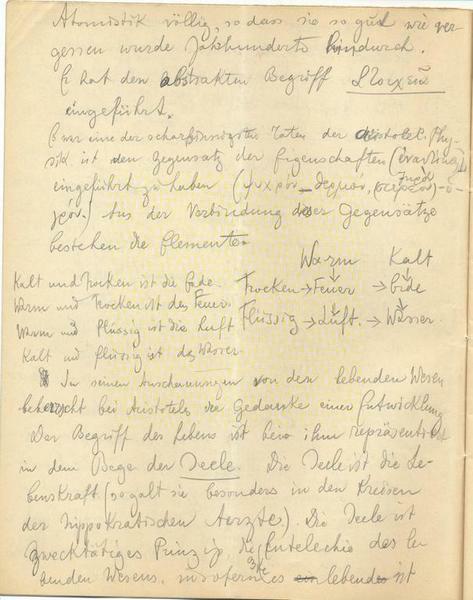 Atomistik völlig, so dass sie so gut wie ver-
gessen wurde Jahrhunderte hindurch.
Er hat den abstrakten Begriff Στοιχεῖα
eingeführt.
Es war eine der scharfsinnigsten Taten der aristotel. Phy-
sik. ist den Gegensatz der Eigenschaften (ἐναντίον)
eingeführt zu haben (ψυχρόν – θερμόν, ξηρόν – ὑ-
γρόν.) Aus der Verbindung dieser Gegensätze
bestehen die Elemente.
Warm Kalt
Kalt und Trocken ist die Erde. Trocken → Feuer → Erde
Warm und Trocken ist das Feuer.
Warm und Flüssig ist die Luft Flüssig → Luft. → Wasser.
Kalt und flüssig ist das Wasser.
In seinen Anschauungen von den lebenden Wesen
beherrscht bei Aristoteles der Gedanke einer Entwicklung
Der Begriff des Lebens ist bei ihm repräsentiert
in dem Begr. der Seele. Die Seele ist die Le-
benskraft (so galt sie besonders in den Kreisen
der hippokratischen Aerzte). Die Seele ist
zwecktätiges Prinzip, die Entelechie des le-
benden Wesens, insofern es lebend ist